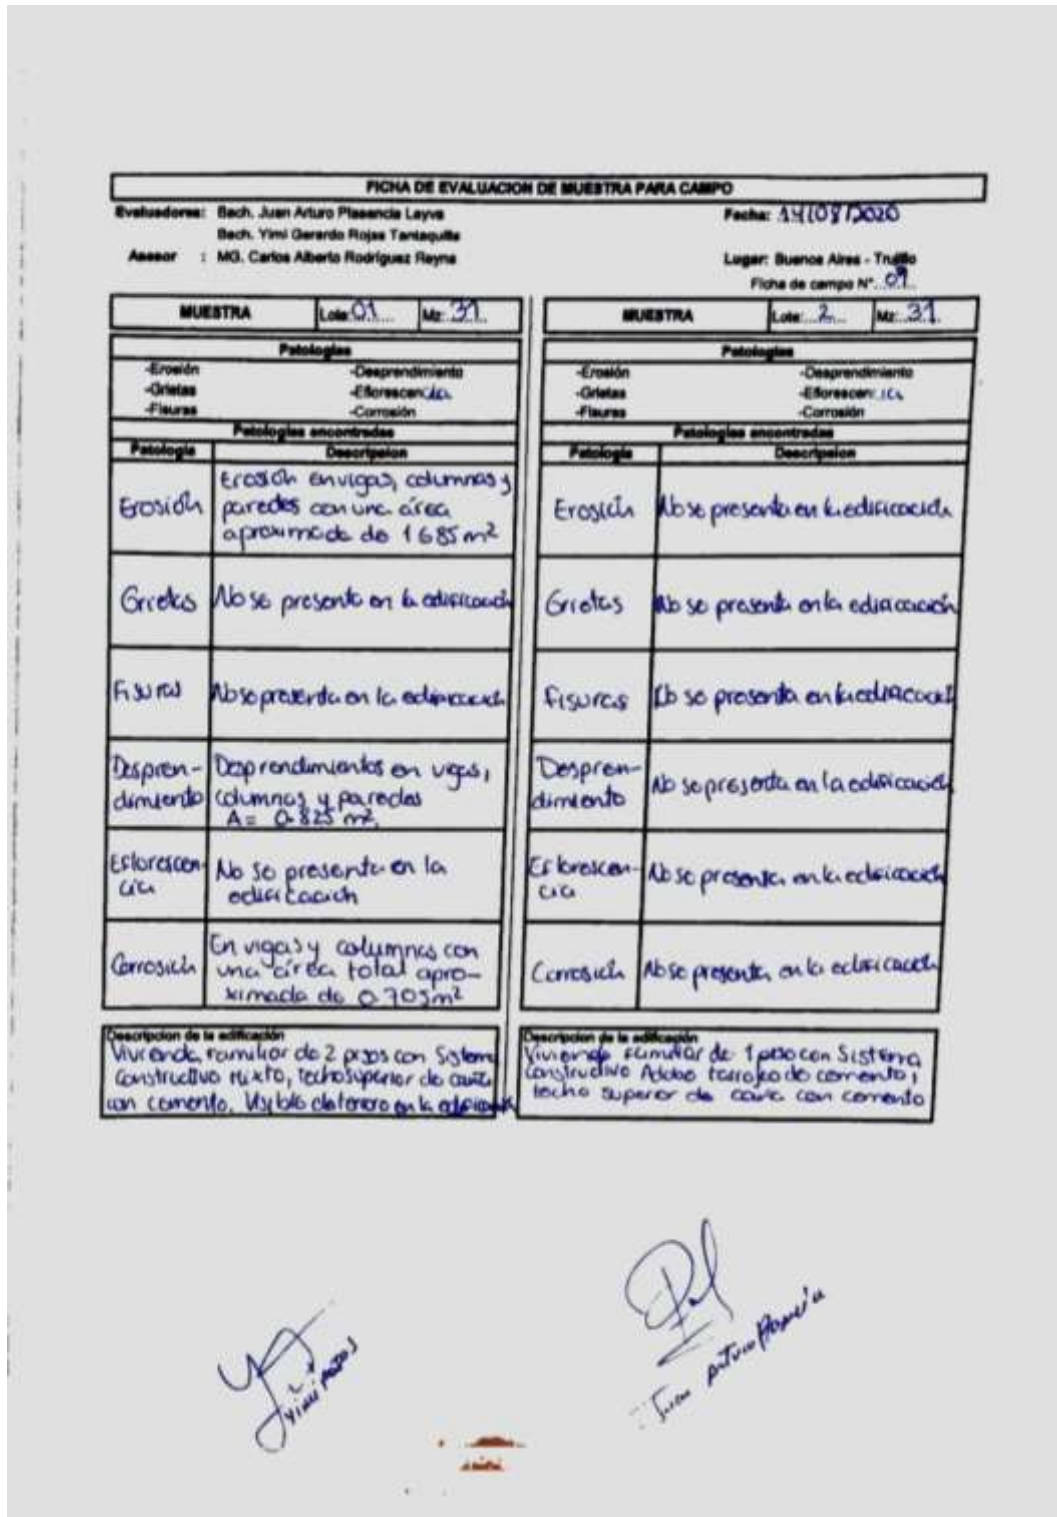 FICHA DE EVALUACION DE MUESTRA PARA CAMPO
Evaluadores: Bach. Juan Arturo Plasencia Leyva
Fecha: 14/08/2020
Bach. Yimi Gerardo Rojas Tantaquilla
Asesor : MG. Carlos Alberto Rodríguez Reyna
Lugar: Buenos Aires - Trujillo
Ficha de campo N°...09..
MUESTRA Lote: 01.... Mz: 31..
Patologias
-Erosión -Desprendimiento
-Grietas -Eflorescencia
-Fisuras -Corrosión
Patologias encontradas
Patologia Descripsion
Erosión
Erosión en vigas, columnas y
paredes con una área
aproximada de 1.685 m²
Grietas No se presenta en la edificación
Fisuras No se presenta en la edificación
Despren-
dimiento
Desprendimientos en vigas,
columnas y paredes
A = 0.825 m².
Eflorescen-
cia
No se presenta en la
edificación
Corrosión
En vigas y columnas con
una área total apro-
ximada de 0.705m²
Descripcion de la edificación
Vivienda familiar de 2 pisos con Sistema
Constructivo Mixto, techo superior de caña
con cemento. Visible deterioro en la edificación
MUESTRA Lote:...2.... Mz:..31.
Patologias
-Erosión -Desprendimiento
-Grietas -Eflorescencia
-Fisuras -Corrosión
Patologias encontradas
Patologia Descripsion
Erosión No se presenta en la edificación
Grietas No se presenta en la edificación
Fisuras No se presenta en la edificación
Despren-
dimiento
No se presenta en la edificación
Eflorescen-
cia
No se presenta en la edificación
Corrosión No se presenta en la edificación
Descripcion de la edificación
Vivienda familiar de 1 piso con Sistema
Constructivo Adobe tarrajeo de cemento,
techo superior de caña con cemento
Yimi Rojas
Juan Arturo Plasencia